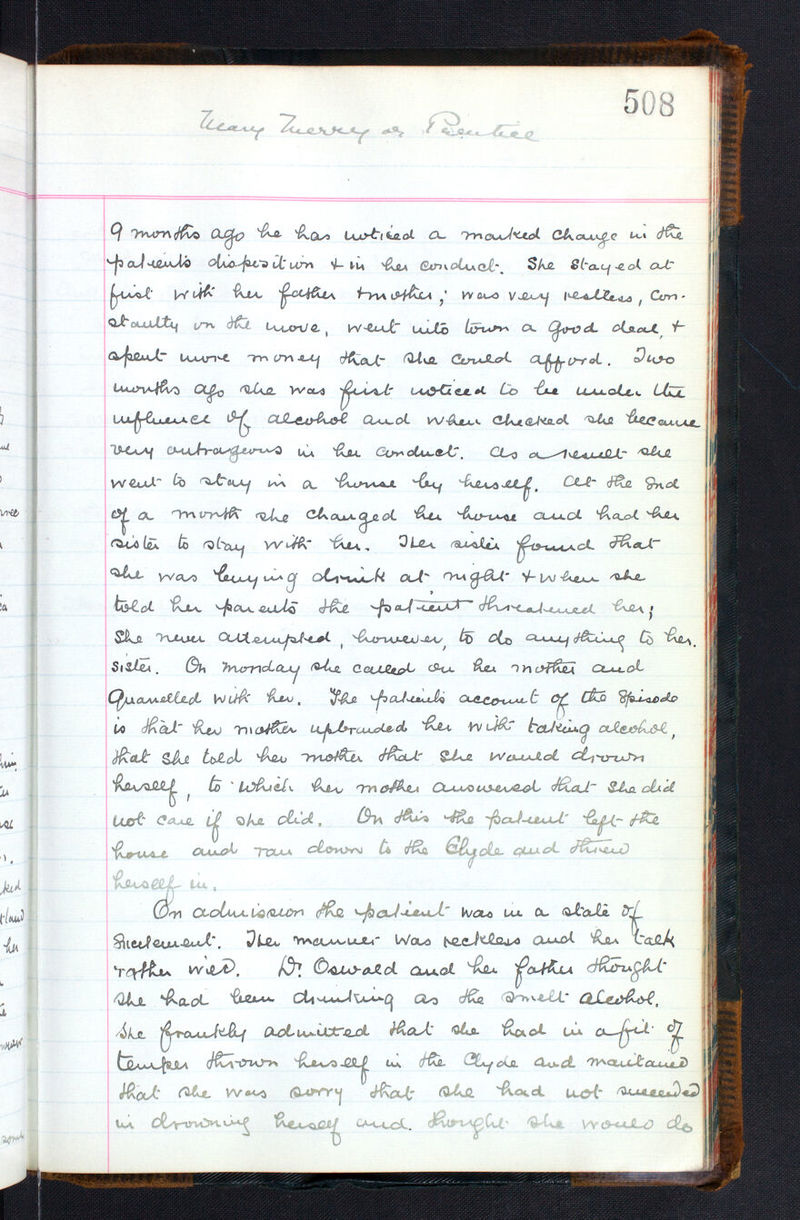 508
Mary Merry or Prentice
9 months ago he has noticed a marked change in the
patient's disposition & in her conduct. She stayed at
first with her father & mother; was very restless, con-
stantly on the move, went into town a good deal, &
spent more money that she could afford. Two
months ago she was first noticed to be under the
influence of alcohol and when checked she became
very outrageous in her conduct. As a result she
went to stay in a house by herself. At the End
of a month she changed her house and had her
sister to stay with her. Her sister found that
she was buying drink at night & when she
told her parents the patient threatened her;
She never attempted, however, to do anything to her.
sister. On Monday she called on her mother and
Quarrelled with her. The patient's account of the Episode
is that her mother upbraided her with taking alcohol,
that she told her mother that she would drown
herself, to which her mother answered that she did
not care if she did. On this the patient left the
house and ran down to the Clyde and threw
herself in.
On admission the patient was in a state of
Excitement. Her manner was reckless and her talk
rather wild. Dr. Oswald and her father thought
she had been drinking as she smelt alcohol.
She frankly admitted that she had in a fit of
temper thrown herself in the Clyde and maintained
that she was sorry that she had not succeeded
in drowning herself and. thought she would do